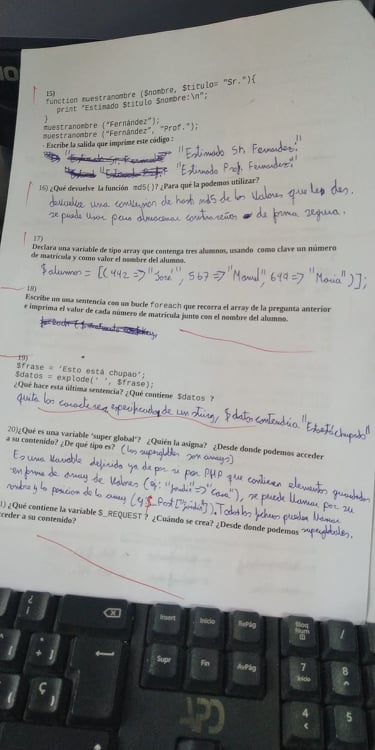 15)
function muestranombre ($nombre, $titulo= "Sr."){
print "Estimado $titulo $nombre:\n";
}
muestranombre ("Fernández");
muestranombre ("Fernández", "Prof.");
Escribe la salida que imprime este código:
"Estimado Sr. Fernandez:"
"Estimado Prof. Fernandez:"
16) ¿Qué devuelve la función md5()? ¿Para qué la podemos utilizar?
devuelve una conversion de hash md5 de los valores que les des.
se puede usar para almacenar contraseñas de forma segura.
17)
Declara una variable de tipo array que contenga tres alumnos, usando como clave un número
de matrícula y como valor el nombre del alumno.
$alumnos = [(442 => "José", 567 => "Manuel", 644 => "Maria")];
18)
Escribe una sentencia con un bucle foreach que recorra el array de la pregunta anterior
e imprima el valor de cada número de matrícula junto con el nombre del alumno.
19)
$frase = 'Esto está chupao';
$datos = explode(' ', $frase);
¿Qué hace esta última sentencia? ¿Qué contiene $datos ?
quita los caracteres especificados de un string, $datos contendria "Estoestáchupado"
20)¿Qué es una variable 'super global'? ¿Quién la asigna? ¿Desde donde podemos acceder
a su contenido? ¿De qué tipo es? (Las superglobales son arrays)
Es una variable definida ya de por si por PHP que contiene elementos guardados
en forma de array de valores (ej: => "Casa"), se puede llamar por su
nombre y la posicion de la array (ej $_Post[ ]). Todos los ficheros pueden llamar
superglobales.
1) ¿Qué contiene la variable $_REQUEST? ¿Cuándo se crea? ¿Desde donde podemos
cceder a su contenido?
Insert
Inicio
RePág
Bloq
Num
/
Supr
Fin
AvPág
7
Inicio
8
4
5
Ç
+
]
¿
¡